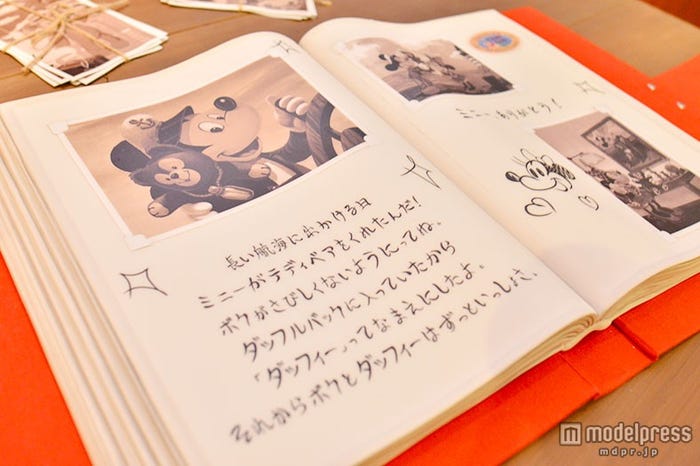 長い航海に出かける日
ミニーがテディベアをくれたんだ!
ボクがさびしくないようにってね。
ダッフルバッグに入っていたから
「ダッフィー」ってなまえにしたよ。
それからボクとダッフィーはずっといっしょさ。
ミニー、ありがとう!
modelpress
mdpr.jp